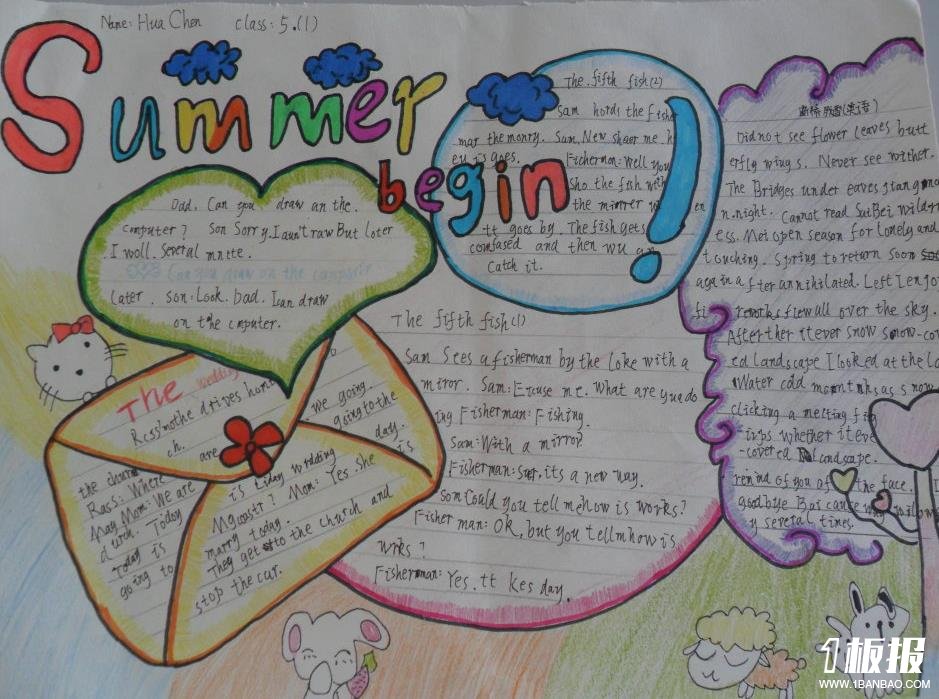 Name: Hua Chen class: 5.(1)
Summer
begin!
Dad. Can you draw an the.
computer? Son Sorry. I aun't raw But loter
I woll. Several mnite.
Can you draw on the computer
later. son: Look. bad. I can draw
on the cmputer.
The fifth fish(2)
Sam hords the fisher
mar the monry. Sam. New shoer me h
eu is goes. Fisherman: Well you
sho the fish with
the mirrer w en
tt goes by. The fish gets
comfased and then wu an
Catch it.
The fifth fish(1)
Sam Sees a fisherman by the loke with a
miror. Sam: Ercuse me. What are you do
ing Fisherman: Fishing.
Sam: With a mirrop?
Fisherman: Suer, its a new way.
som Could you tell mehow is works?
Fisher man: Ok, but you tellmhow is
wrks?
Fisherman: Yes. tt kes day.
The wedding
Rass'mothe drives home
ch. are we going.
the church going to the
Rass: Where day.
May Mom: We are is today wridding is
durch. Today Mgwastr? Mom: Yes. She
today is marry today.
going to They get to the church and
stop the car.
断桥残雪(英语)
Did not see flower leaves butt
erfly wings. Never see wither.
The Bridges under eaves jiangnan
n.night. Cannot read SuBei wilder
ess. Mei open season for lonely and
touching. Spring to return soon
again a fter annihilated. Left I enjoy
fi reworks flew all over the sky.
After ther it ever snow snow-cov
ed landscape I looked at the la
Water cold as snow
clicking a melting fi
whether it eve
-covered landscape.
remind of you of the face. I
goodbye Bai cause way willow
y several times.
1板报
WWW.1BANBAO.COM